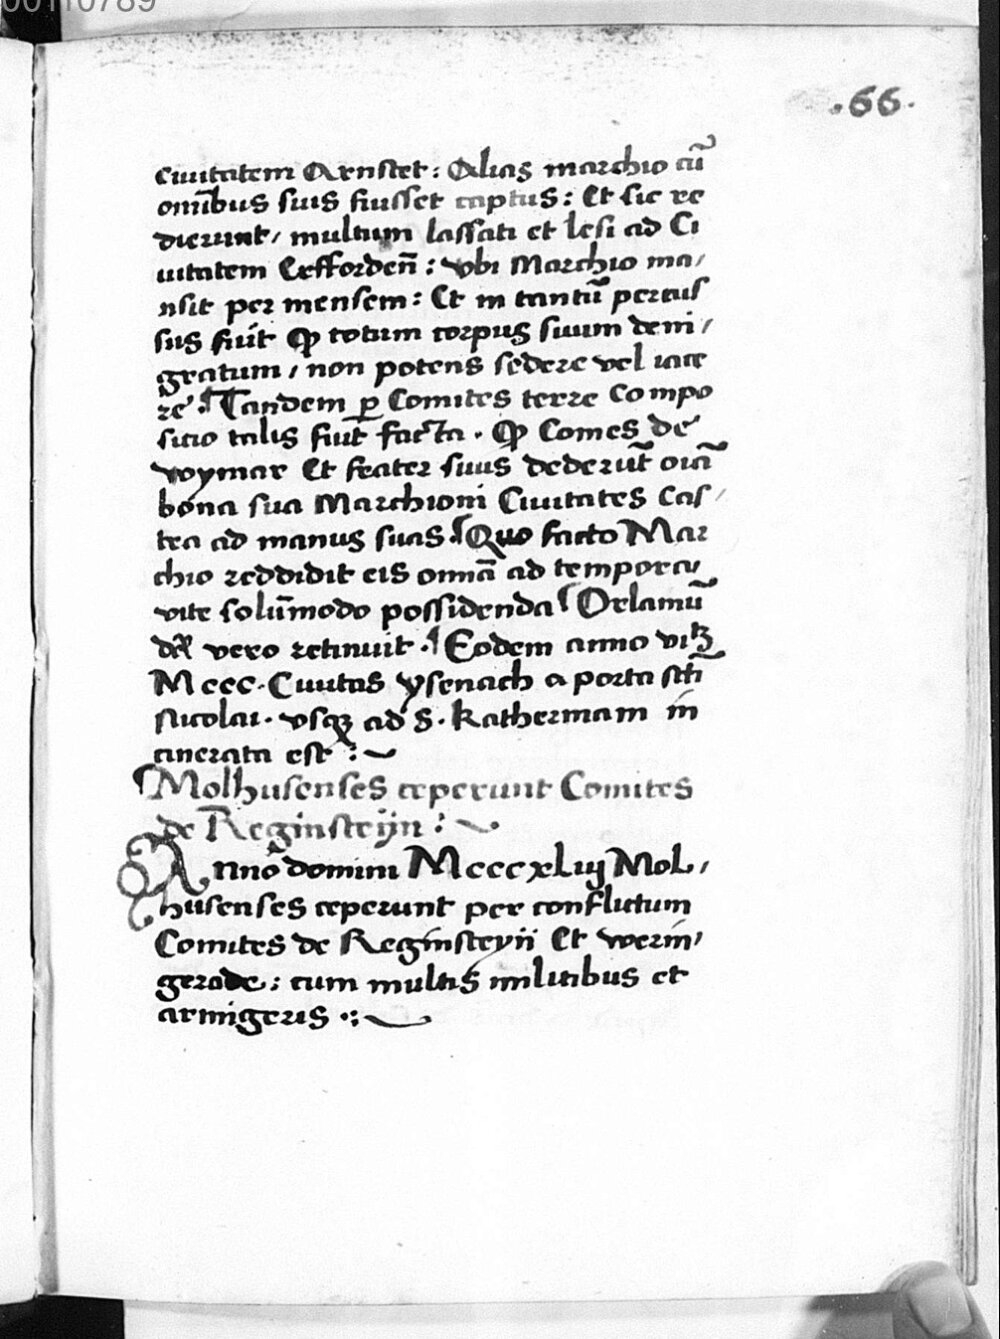 00110789
.66.
ciuitatem Arnstet : Alias marchio cũ
om̃ibus suis fuisset captus : Et sic re
dierunt / multum lassati et lesi ad Ci
uitatem Erfforden̄ : vbi Marchio ma/
nsit per mensem : Et in tantũ percus
sus fuit ꝙ totum corpus suum deni /
gratum / non potens sedere vel iace
re . Tandem ꝑ Comites terre Compo
sicio talis fuit facta . ꝙ Comes de
wymar Et frater suus dederũt oīa
bona sua Marchioni Ciuitates Cas /
tra ad manus suas . Quo facto Mar
chio reddidit eis omnā ad tempora
vite solũmodo possidenda Orlamũ
dā vero retinuit . Eodem anno vitꝫ
Mccc . Ciuitas ysenach a porta scti
Nicolai . vsqꝫ ad S . Katherinam in
cinerata est :~
Molhusenses ceperunt Comites
de Reginsteijn :~
Anno domini Mcccxliij Mol /
husenses ceperunt per conflictum
Comites de Reginsteyn Et werin/
gerode : cum multis militibus et
armigeris .:~